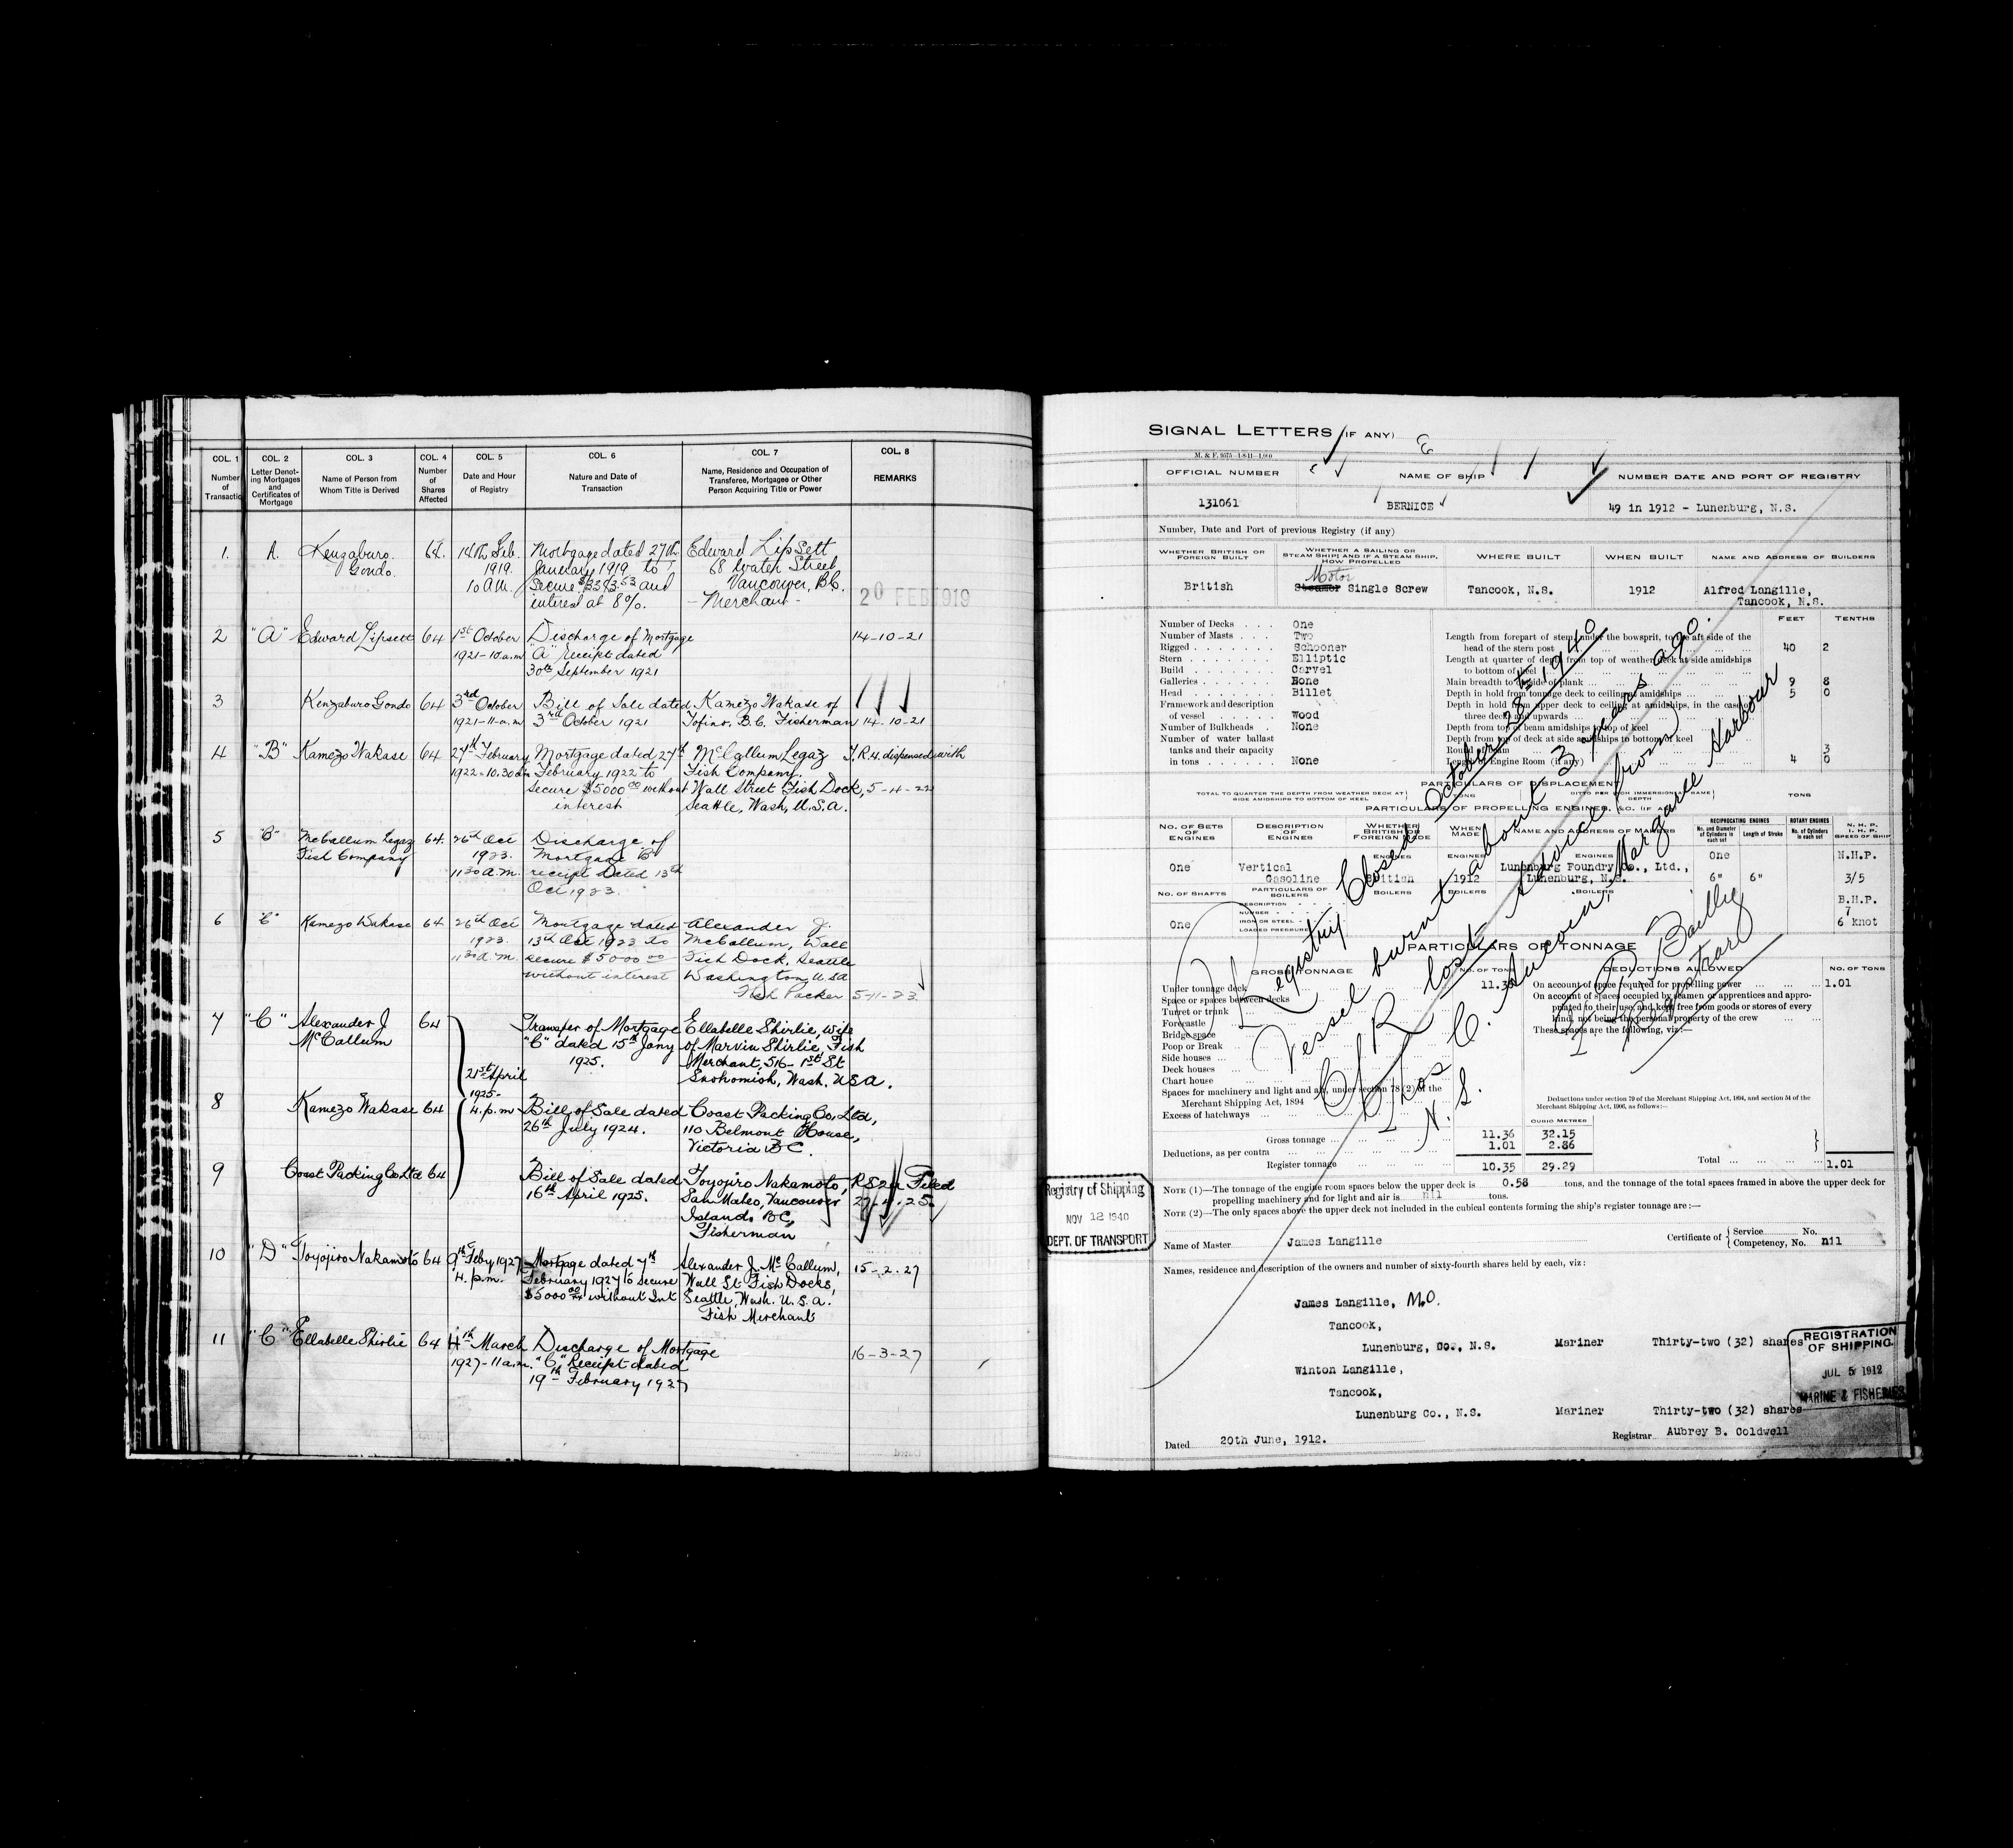 COL. 1
Number
of
Transactio
COL. 2
Letter Denot-
ing Mortgages
and
Certificates of
Mortgage
COL. 3
Name of Person from
Whom Title is Derived
COL. 4
Number
of
Shares
Affected
COL. 5
Date and Hour
of Registry
COL. 6
Nature and Date of
Transaction
COL. 7
Name, Residence and Occupation of
Transferee, Mortgagee or Other
Person Acquiring Title or Power
COL. 8
REMARKS
1. A. Kenzaburo 64. 14th Feb. Mortgage dated 27th Edward Lipsett
Gondo. 1919. January 1919 to 68 Water Street
10 a.m. secure and Vancouver, B.C.
interest at 8%. - Merchant -
20 FEB 1919
2 "A" Edward Lipsett 64 1st October Discharge of Mortgage 14-10-21
1921-10 a.m "A" receipt dated
30th September 1921
3 Kenzaburo Gondo 64 3rd October Bill of Sale dated Kamezo Wakase of
1921-11-a.m 3rd October 1921 Tofino, B.C. Fisherman 14-10-21
4 "B" Kamezo Wakase 64 27th February Mortgage dated 27th McCallum Legaz dispensed with
1922-10.30 a.m February 1922 to Fish Company.
secure $5000 00 without Wall Street Fish Dock, 5-4-22
interest Seattle, Wash, U.S.A.
5 "B" McCallum Legaz 64. 26th Oct Discharge of
Fish Company 1923. Mortgage B
11 30 a.m. receipt dated 13th
Oct 1923.
6 "C" Kamezo Wakase 64 26th Oct Mortgage dated Alexander J.
1923. 13th Oct 1923 to McCallum, Wall
11 30 a.m. secure $5000 00 Fish Dock, Seattle
without interest Washington, U.S.A
Fish Packer 5-11-23.
7 "C" Alexander J 64 Transfer of Mortgage Ellabelle Shirlie, wife
McCallum "C" dated 15th Jany of Marvin Shirlie, Fish
1925. Merchant, 516-1st St
21st April Snohomish, Wash. U.S.A.
1925-
8 Kamezo Wakase 64 4. p.m Bill of Sale dated Coast Packing Co, Ltd,
26th July 1924. 110 Belmont House,
Victoria BC.
9 Coast Packing Co Ltd 64 Bill of Sale dated Toyojiro Nakamoto, Filed
16th April 1925. San Mateo, Vancouver 27.4.25.
Island, BC,
Fisherman
10 "D" Toyojiro Nakamoto 64 9th Feby 1927 Mortgage dated 7th Alexander J. McCallum, 15-2-27
4. p.m. February 1927 to secure Wall St Fish Docks,
$5000 00 without Int Seattle, Wash. U.S.A.
Fish Merchant
11 "C" Ellabelle Shirlie 64 4th March Discharge of Mortgage 16-3-27
1927-11 a.m. "C" Receipt dated
19th February 1927
SIGNAL LETTERS (IF ANY)
OFFICIAL NUMBER NAME OF SHIP NUMBER DATE AND PORT OF REGISTRY
131061 BERNICE 49 in 1912 - Lunenburg, N.S.
Number, Date and Port of previous Registry (if any)
WHETHER BRITISH OR
FOREIGN BUILT
WHETHER A SAILING OR
STEAM SHIP; AND IF A STEAM SHIP,
HOW PROPELLED
WHERE BUILT WHEN BUILT NAME AND ADDRESS OF BUILDERS
Motor
British Steamer Single Screw Tancook, N.S. 1912 Alfred Langille,
Tancook, N.S.
FEET TENTHS
Number of Decks One
Number of Masts Two
Rigged Schooner
Stern Elliptic
Build Carvel
Galleries None
Head Billet
Framework and description
of vessel Wood
Number of Bulkheads None
Number of water ballast
tanks and their capacity
in tons None
Length from forepart of stem, under the bowsprit, to the aft side of the
head of the stern post 40 2
Length at quarter of depth from top of weather deck at side amidships
to bottom of keel
Main breadth to outside of plank 9 8
Depth in hold from tonnage deck to ceiling at amidships 5 0
Depth in hold from upper deck to ceiling at amidships, in the case of
three decks and upwards
Depth from top of beam amidships to top of keel
Depth from top of deck at side amidships to bottom of keel
Round of beam 3
Length of Engine Room (if any) 4 0
PARTICULARS OF DISPLACEMENT
TOTAL TO QUARTER THE DEPTH FROM WEATHER DECK AT
SIDE AMIDSHIPS TO BOTTOM OF KEEL
TONS
PARTICULARS OF PROPELLING ENGINES, &C. (IF ANY)
NO. OF SETS
OF
ENGINES
DESCRIPTION
OF
ENGINES
WHETHER
BRITISH OR
FOREIGN MADE
WHEN
MADE
NAME AND ADDRESS OF MAKERS
RECIPROCATING ENGINES
No. and Diameter
of Cylinders in
each set
Length of Stroke
ROTARY ENGINES
No. of Cylinders
in each set
N. H. P.
I. H. P.
SPEED OF SHIP
One Vertical
Gasoline British 1912 Lunenburg Foundry Co., Ltd.,
Lunenburg, N.S.
One
6" 6"
N.H.P.
3/5
B.H.P.
7
6 knot
NO. OF SHAFTS PARTICULARS OF
BOILERS
DESCRIPTION
NUMBER
IRON OR STEEL
LOADED PRESSURE
BOILERS BOILERS BOILERS
One
PARTICULARS OF TONNAGE
GROSS TONNAGE NO. OF TONS DEDUCTIONS ALLOWED NO. OF TONS
Under tonnage deck 11.36
Space or spaces between decks
Turret or trunk
Forecastle
Bridge space
Poop or Break
Side houses
Deck houses
Chart house
Spaces for machinery and light and air, under section 78 (2) of the
Merchant Shipping Act, 1894
Excess of hatchways
On account of space required for propelling power 1.01
On account of spaces occupied by seamen or apprentices and appro-
priated to their use, and kept free from goods or stores of every
kind, not being the personal property of the crew
These spaces are the following, viz:—
Deductions under section 79 of the Merchant Shipping Act, 1894, and section 54 of the
Merchant Shipping Act, 1906, as follows:—
CUBIC METRES
Gross tonnage 11.36 32.15
Deductions, as per contra 1.01 2.86
Register tonnage 10.35 29.29
Total 1.01
NOTE (1)—The tonnage of the engine room spaces below the upper deck is 0.58 tons, and the tonnage of the total spaces framed in above the upper deck for
propelling machinery and for light and air is nil tons.
NOTE (2)—The only spaces above the upper deck not included in the cubical contents forming the ship's register tonnage are:—
Name of Master James Langille
Certificate of Service No.
Competency, No. nil
Names, residence and description of the owners and number of sixty-fourth shares held by each, viz:
James Langille, M.O.
Tancook,
Lunenburg, Co., N.S. Mariner Thirty-two (32) shares
Winton Langille,
Tancook,
Lunenburg Co., N.S. Mariner Thirty-two (32) shares
Dated 20th June, 1912.
Registrar Aubrey B. Coldwell
Registry Closed October 28th, 1940
Vessel burnt about 3 years ago.
C of R lost Advice from
Chas C. Aucoin, Margaree Harbour
N.S.
Baillie
Registrar
Registry of Shipping
NOV 12 1940
DEPT. OF TRANSPORT
REGISTRATION
OF SHIPPING
JUL 5 1912
MARINE & FISHERIES